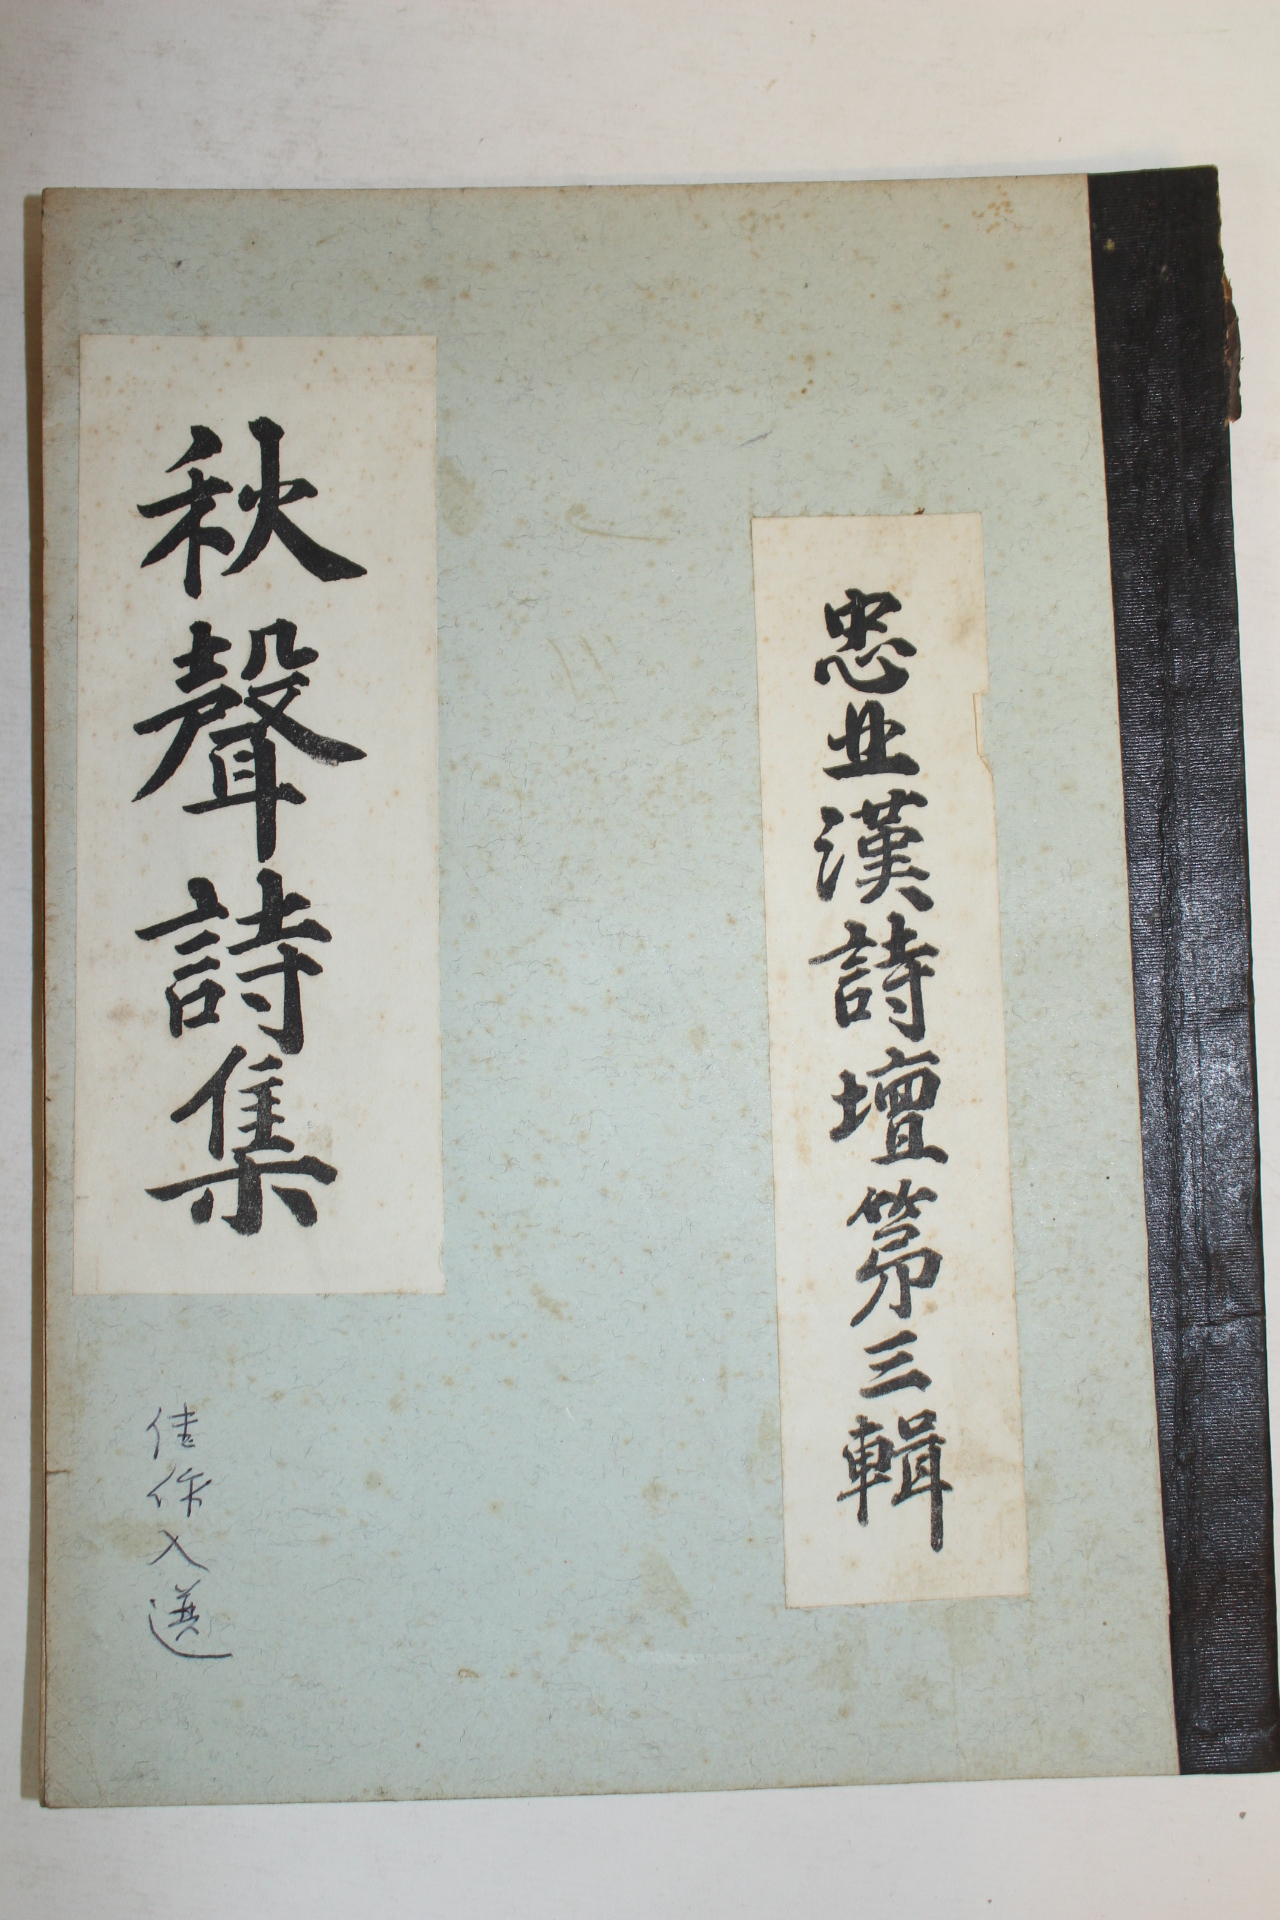 忠北漢詩壇第三輯
秋聲詩集
佳作入選